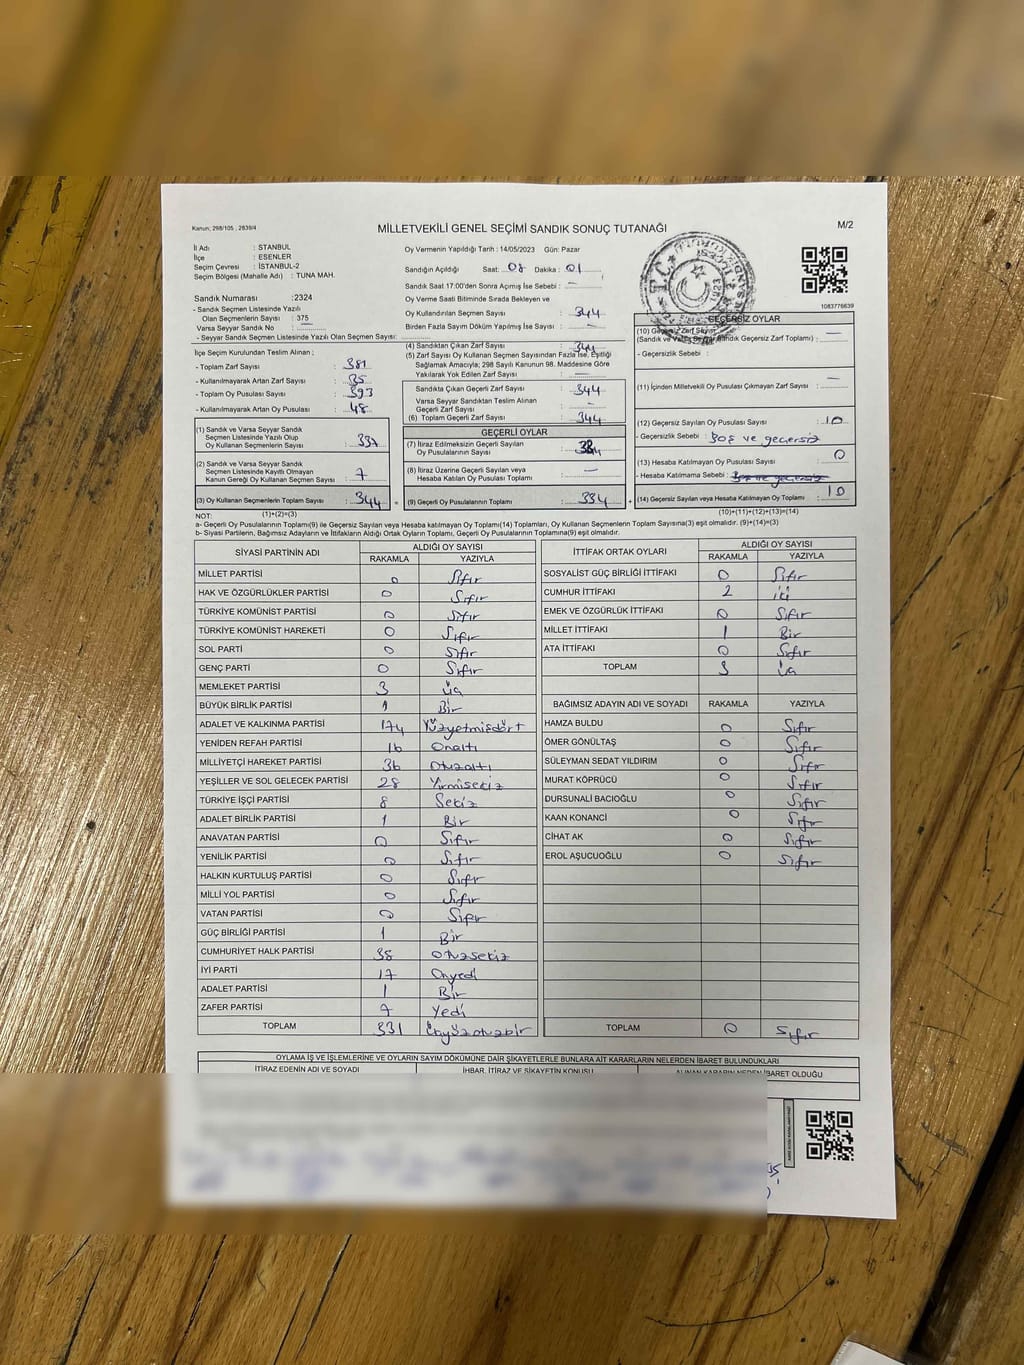 Kanun; 298/105 , 2839/4
MİLLETVEKİLİ GENEL SEÇİMİ SANDIK SONUÇ TUTANAĞI
M/2
İl Adı : İSTANBUL
İlçe : ESENLER
Seçim Çevresi : İSTANBUL-2
Seçim Bölgesi (Mahalle Adı) : TUNA MAH.
Sandık Numarası :2324
- Sandık Seçmen Listesinde Yazılı
Olan Seçmenlerin Sayısı : 375
Varsa Seyyar Sandık No : —
- Seyyar Sandık Seçmen Listesinde Yazılı Olan Seçmen Sayısı:
Oy Vermenin Yapıldığı Tarih : 14/05/2023 Gün: Pazar
Sandığın Açıldığı Saat: 08 Dakika : 01
Sandık Saat 17:00'den Sonra Açımış İse Sebebi : —
Oy Verme Saati Bitiminde Sırada Bekleyen ve
Oy Kullandırılan Seçmen Sayısı : 344
Birden Fazla Sayım Döküm Yapılmış İse Sayısı : —
1083776639
İlçe Seçim Kurulundan Teslim Alınan ;
- Toplam Zarf Sayısı : 381
- Kullanılmayarak Artan Zarf Sayısı : 35
- Toplam Oy Pusulası Sayısı : 393
- Kullanılmayarak Artan Oy Pusulası : 48
(1) Sandık ve Varsa Seyyar Sandık
Seçmen Listesinde Yazılı Olup
Oy Kullanan Seçmenlerin Sayısı : 337
(2) Sandık ve Varsa Seyyar Sandık
Seçmen Listesinde Kayıtlı Olmayan
Kanun Gereği Oy Kullanan Seçmen Sayısı : 7
(3) Oy Kullanan Seçmenlerin Toplam Sayısı : 344 =
(1)+(2)=(3)
(4) Sandıktan Çıkan Zarf Sayısı : 344
(5) Zarf Sayısı Oy Kullanan Seçmen Sayısından Fazla İse, Eşitliği
Sağlamak Amacıyla; 298 Sayılı Kanunun 98. Maddesine Göre
Yakılarak Yok Edilen Zarf Sayısı : —
Sandıkta Çıkan Geçerli Zarf Sayısı : 344
Varsa Seyyar Sandıktan Teslim Alınan
Geçerli Zarf Sayısı : -
(6) Toplam Geçerli Zarf Sayısı : 344
GEÇERLİ OYLAR
(7) İtiraz Edilmeksizin Geçerli Sayılan
Oy Pusulalarının Sayısı :
(8) İtiraz Üzerine Geçerli Sayılan veya
Hesaba Katılan Oy Pusulalarının Sayısı : —
(9) Geçerli Oy Pusulalarının Toplamı : 334 +
GEÇERSİZ OYLAR
(10) Geçersiz Zarf Sayısı
(Sandık ve Varsa Seyyar Sandık Geçersiz Zarf Toplamı) : —
- Geçersizlik Sebebi :
(11) İçinden Milletvekili Oy Pusulası Çıkmayan Zarf Sayısı : —
(12) Geçersiz Sayılan Oy Pusulası Sayısı : 10
- Geçersizlik Sebebi : Boş ve geçersiz
(13) Hesaba Katılmayan Oy Pusulası Sayısı : 0
- Hesaba Katılmama Sebebi : Boş ve geçersiz
(14) Geçersiz Sayılan veya Hesaba Katılmayan Oy Toplamı : 10
(10)+(11)+(12)+(13)=(14)
NOT:
a- Geçerli Oy Pusulalarının Toplamı(9) ile Geçersiz Sayılan veya Hesaba katılmayan Oy Toplamı(14) Toplamları, Oy Kullanan Seçmenlerin Toplam Sayısına(3) eşit olmalıdır. (9)+(14)=(3)
b- Siyasi Partilerin, Bağımsız Adayların ve İttifakların Aldığı Ortak Oyların Toplamı, Geçerli Oy Pusulalarının Toplamına(9) eşit olmalıdır.
SİYASİ PARTİNİN ADI ALDIĞI OY SAYISI
RAKAMLA YAZIYLA
MİLLET PARTİSİ 0 Sıfır
HAK VE ÖZGÜRLÜKLER PARTİSİ 0 Sıfır
TÜRKİYE KOMÜNİST PARTİSİ 0 Sıfır
TÜRKİYE KOMÜNİST HAREKETİ 0 Sıfır
SOL PARTİ 0 Sıfır
GENÇ PARTİ 0 Sıfır
MEMLEKET PARTİSİ 3 Üç
BÜYÜK BİRLİK PARTİSİ 1 Bir
ADALET VE KALKINMA PARTİSİ 174 Yüzyetmişdört
YENİDEN REFAH PARTİSİ 16 Onaltı
MİLLİYETÇİ HAREKET PARTİSİ 36 Otuzaltı
YEŞİLLER VE SOL GELECEK PARTİSİ 28 Yirmisekiz
TÜRKİYE İŞÇİ PARTİSİ 8 Sekiz
ADALET BİRLİK PARTİSİ 1 Bir
ANAVATAN PARTİSİ 0 Sıfır
YENİLİK PARTİSİ 0 Sıfır
HALKIN KURTULUŞ PARTİSİ 0 Sıfır
MİLLİ YOL PARTİSİ 0 Sıfır
VATAN PARTİSİ 0 Sıfır
GÜÇ BİRLİĞİ PARTİSİ 1 Bir
CUMHURİYET HALK PARTİSİ 38 Otuzsekiz
İYİ PARTİ 17 Onyedi
ADALET PARTİSİ 1 Bir
ZAFER PARTİSİ 7 Yedi
TOPLAM 331 Üçyüzotuzbir
İTTİFAK ORTAK OYLARI ALDIĞI OY SAYISI
RAKAMLA YAZIYLA
SOSYALİST GÜÇ BİRLİĞİ İTTİFAKI 0 Sıfır
CUMHUR İTTİFAKI 2 iki
EMEK VE ÖZGÜRLÜK İTTİFAKI 0 Sıfır
MİLLET İTTİFAKI 1 Bir
ATA İTTİFAKI 0 Sıfır
TOPLAM 3 Üç
BAĞIMSIZ ADAYIN ADI VE SOYADI RAKAMLA YAZIYLA
HAMZA BULDU 0 Sıfır
ÖMER GÖNÜLTAŞ 0 Sıfır
SÜLEYMAN SEDAT YILDIRIM 0 Sıfır
MURAT KÖPRÜCÜ 0 Sıfır
DURSUNALİ BACIOĞLU 0 Sıfır
KAAN KONANCİ 0 Sıfır
CİHAT AK 0 Sıfır
EROL AŞUCUOĞLU 0 Sıfır
TOPLAM 0 Sıfır
OYLAMA İŞ VE İŞLEMLERİNE VE OYLARIN SAYIM DÖKÜMÜNE DAİR ŞİKAYETLERLE BUNLARA AİT KARARLARIN NELERDEN İBARET BULUNDUKLARI
İTİRAZ EDENİN ADI VE SOYADI İHBAR, İTİRAZ VE ŞİKAYETİN KONUSU ALINAN KARARIN NEDEN İBARET OLDUĞU